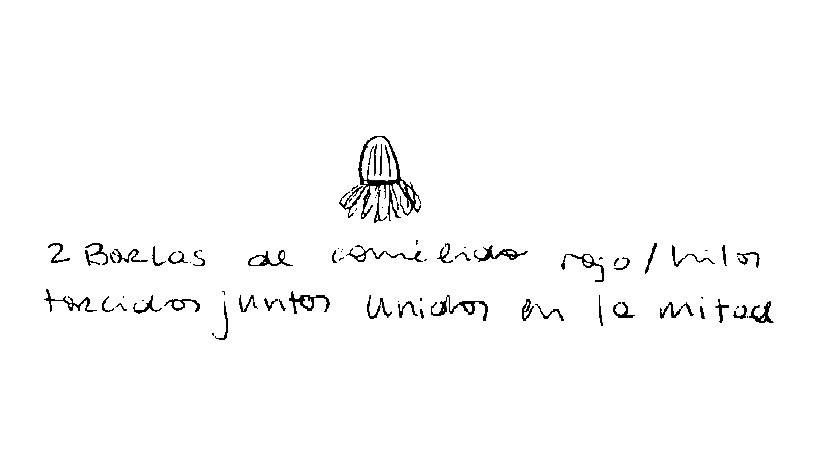 2 Borlas de camélido rojo/hilos
torcidos juntos unidos en la mitad